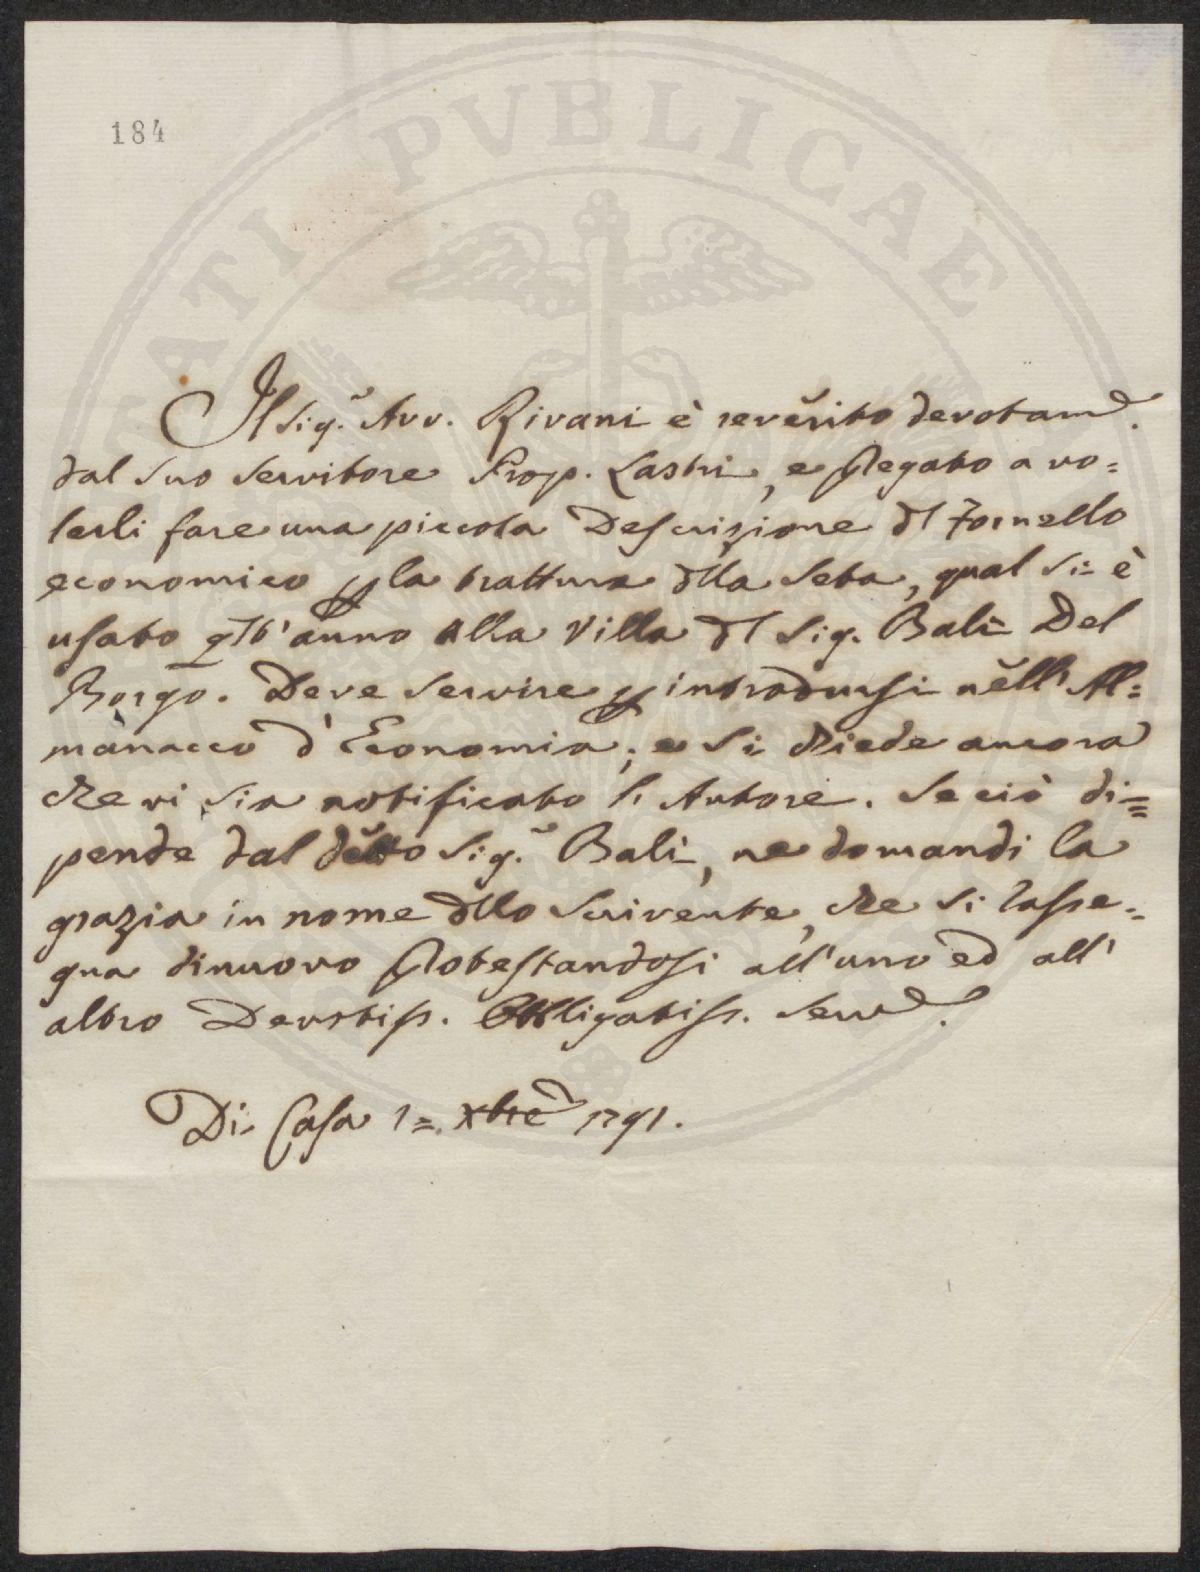 184
PUBLICAE
Il Sig.r Avv. Rivani è reverito devotam.e
dal suo servitore Prop. Lastri, e pregato a vo=
lerli fare una piccola Descrizione del Fornello
economico per la trattura della Seta, qual si è
usato qst'anno alla Villa del Sig. Balì Del
Borgo. Deve servire per introdursi nell'Al=
manacco d'Economia; e si chiede ancora
che vi sia notificato l'Autore. Se ciò di=
pende dal detto Sig.r Balì, ne domandi la
grazia in nome dello scrivente, che si rasse=
gna dinuovo protestandosi all'uno ed all'
altro Devotiss. Obbligatiss. Serv.e
Di Casa 1= Xbre 1791.